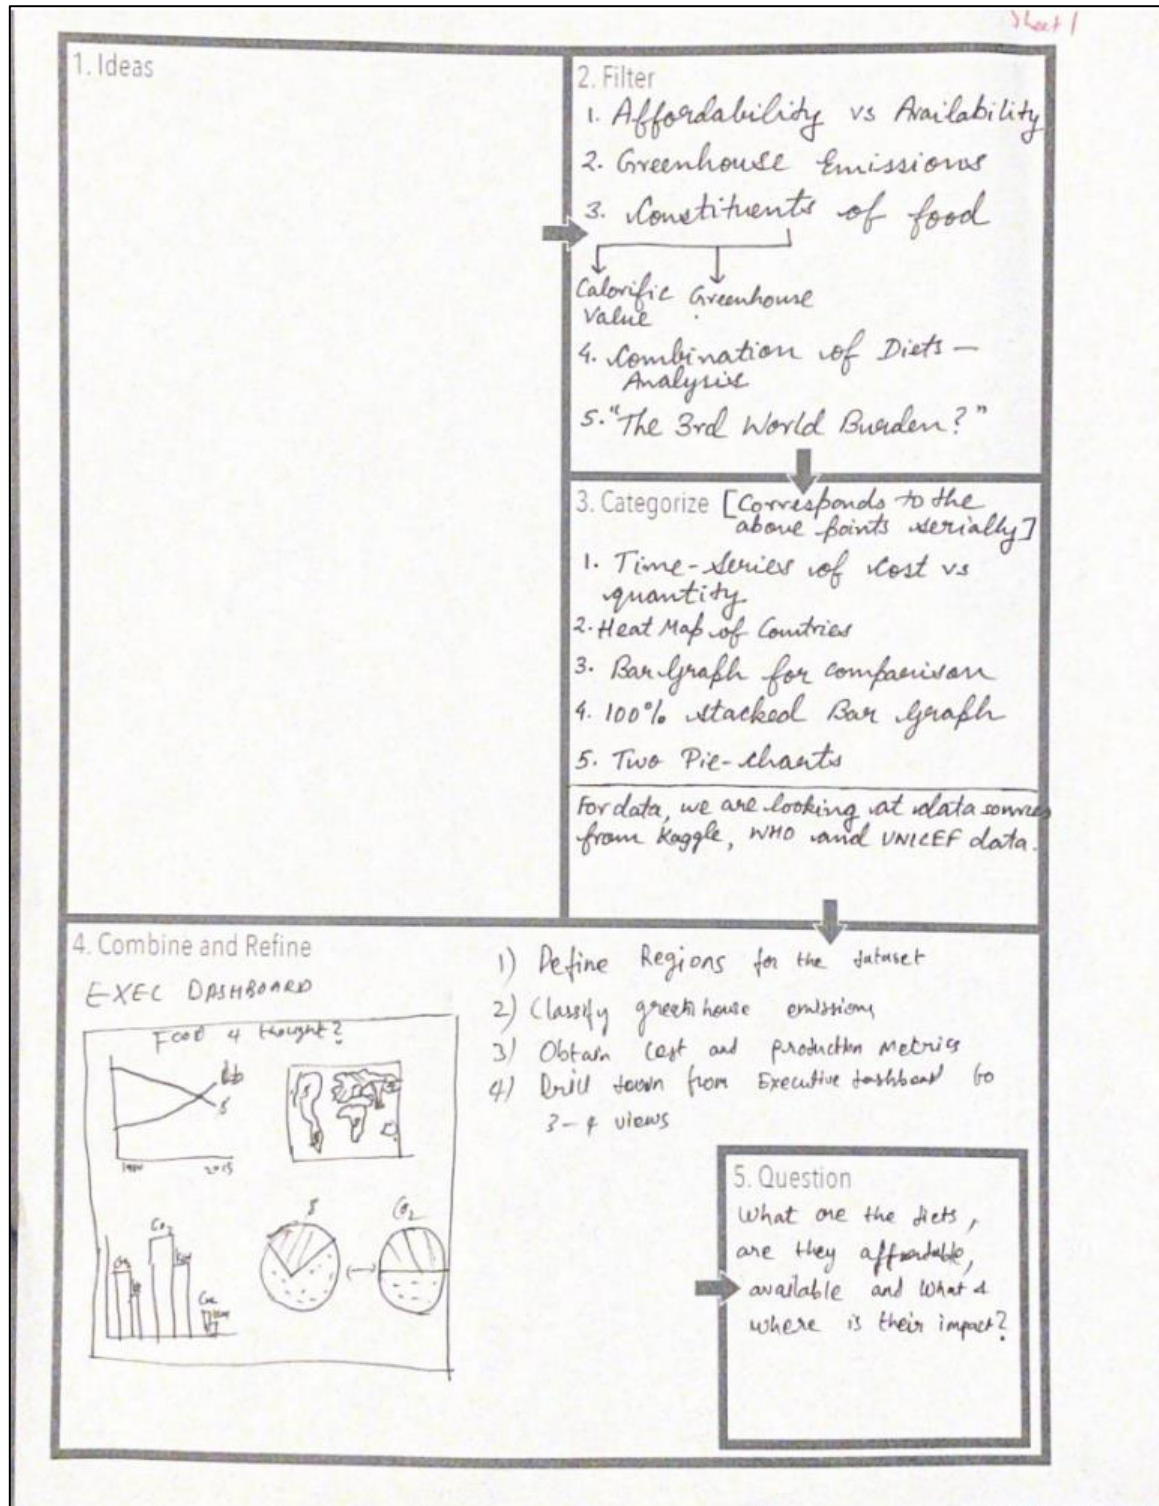 Sheet 1
1. Ideas
2. Filter
1. Affordability vs Availability
2. Greenhouse Emissions
3. Constituents of food
Calorific Greenhouse
Value
4. Combination of Diets –
Analysis
5. "The 3rd World Burden?"
3. Categorize [Corresponds to the
above points serially]
1. Time-series of Cost vs
quantity
2. Heat Map of Countries
3. Bar Graph for comparison
4. 100% stacked Bar Graph
5. Two Pie-charts
For data, we are looking at data sources
from Kaggle, WHO and UNICEF data.
4. Combine and Refine
EXEC DASHBOARD
Food 4 thought?
$
$ CO2
CO2
1) Define Regions for the dataset
2) Classify greenhouse emissions
3) Obtain Cost and production metrics
4) Drill down from Executive dashboard to
3-4 views
5. Question
What are the diets,
are they affordable,
available and what &
where is their impact?